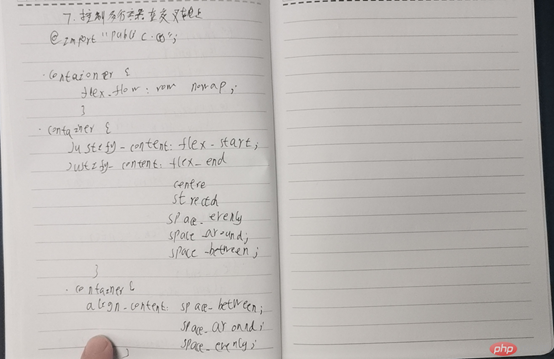 7. 控制多行元素在交叉轴上
@import "public.css";
.container {
flex_flow: row nowap;
}
.container {
Justify-content: flex-start;
Justify-content: flex_end
centre
stretch
space_evenly
space_around;
space-between;
}
.container {
align-content: space_between;
space_around;
space_evenly;
}
php